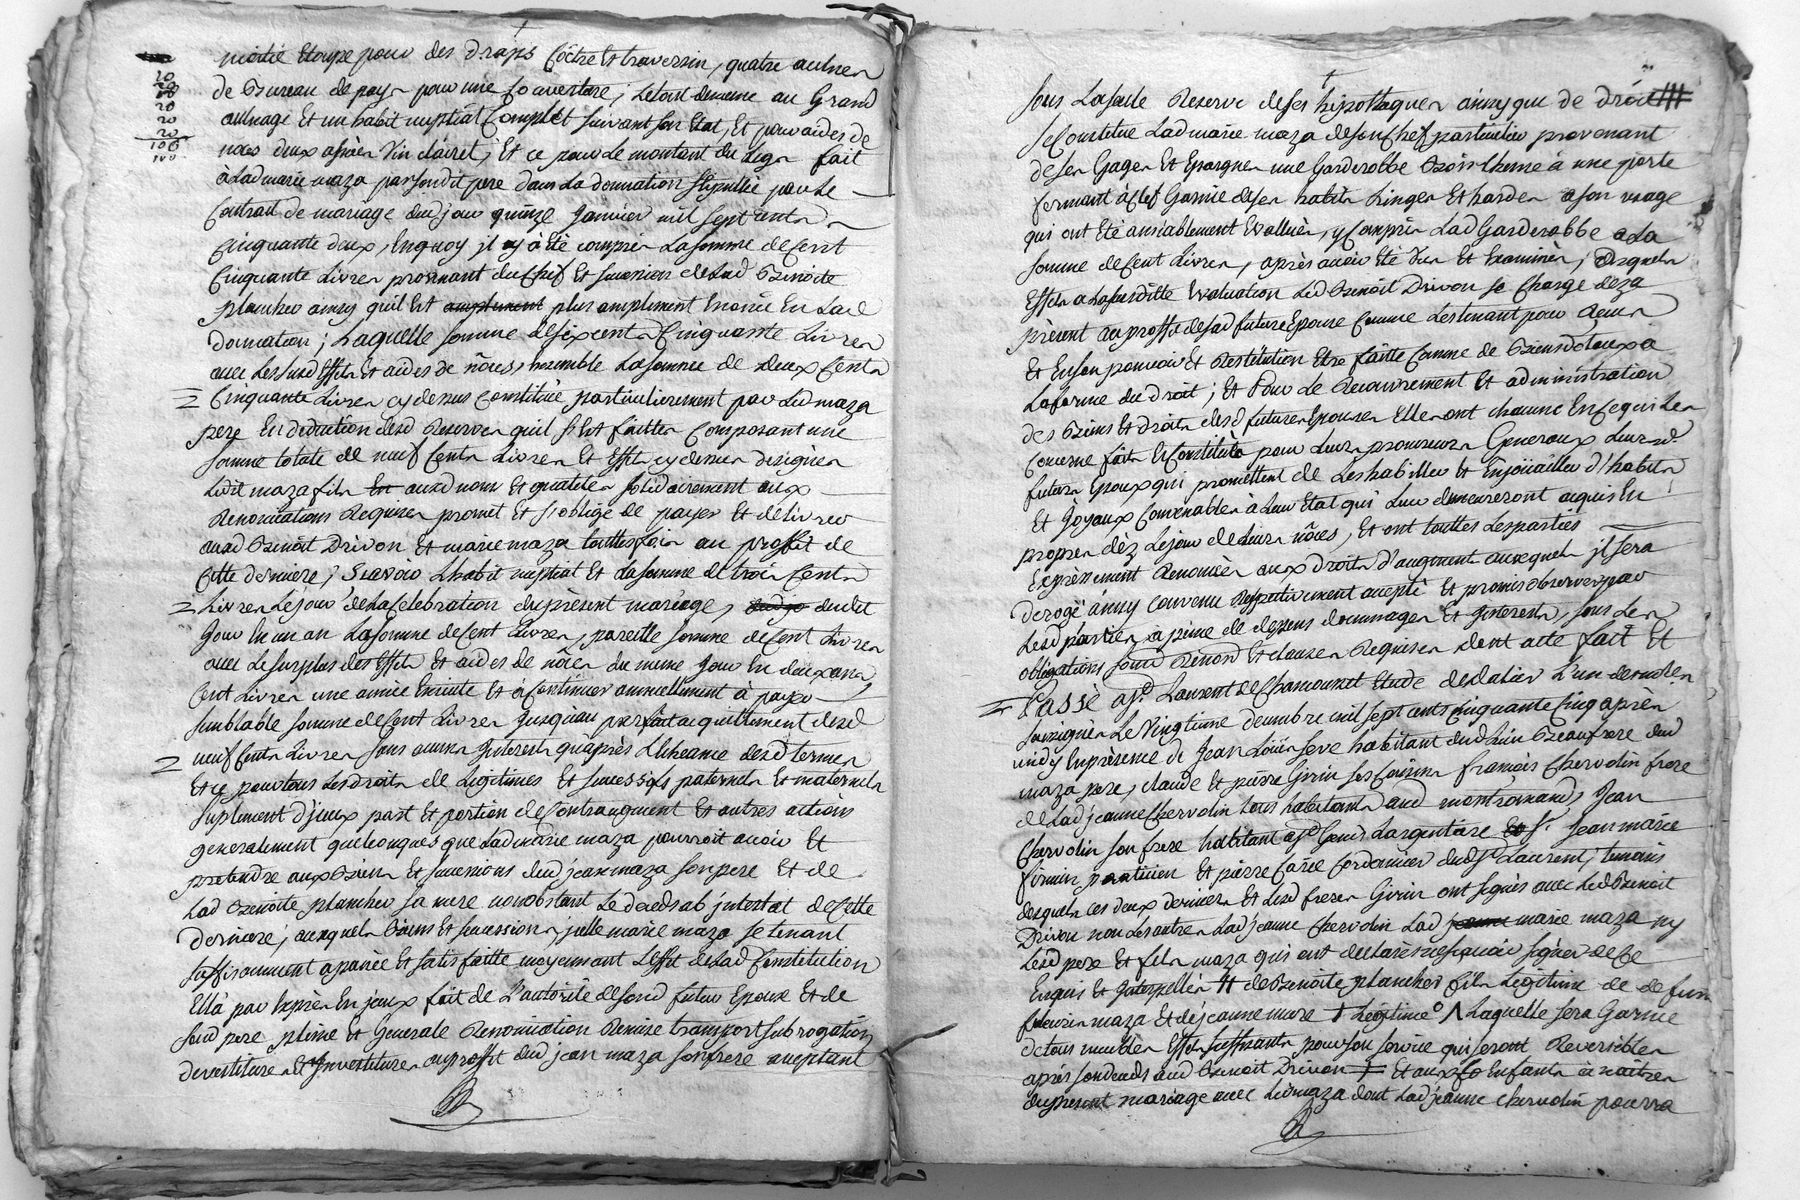 20
20
20
20
20
100
moitié Etoupe pour des Draps Coëtre Et traversin, quatre aulnes
de Bureau de pays pour une Couverture, letout demême au Grand
aulnage Et un habit nuptial Complet suivant son Etat, Et pour aides de
nôces deux asnées Vin clairet; Et ce pour Le montant du Legs fait
a Lad marie maza par sondit pere dans La donnation stipullée par Le
Contrat de mariage dud jour quinze Janvier mil sept cents
Cinquante deux, Enquoy jl y à Eté compris La somme de Cent
Cinquante Livres provenant du Chef Et succession de Lad Benoite
plancher ainsy quil Est amplement plus amplement Enoncé En Lad
donnation; Laquelle somme de six cents Cinquante Livres
avec Les susd Effets Et aides de nôces, Ensemble La somme de deux Cents
Cinquante Livres cy dessus Constituée particulierement par Led maza
pere En deduction desd Reserves quil s'est faittes Composant une
somme totale de neuf Cents Livres Et Effets cy dessus designés
Ledit maza fils En auxd noms Et qualités solidairement aux
Renonciations Requises promet Et s'oblige de payer Et délivrer
aud Benoît Drivon Et marie maza touttesfois au proffit de
Cette derniere, Scavoir L'habit nuptial Et La somme de trois Cents
Livres Le jour de La Celebration du présent mariage, dudit
Jour En un an La somme de Cent Livres, pareille somme de Cent Livres
avec Le surplus des Effets Et aides de nôces du même Jour En deux ans
Cent Livres une année Ensuite Et à Continuer annuellement à payer
semblable somme de Cent Livres Jusquau parfait acquittement desd
neuf Cents Livres sans aucuns Interests qu'après L'écheance desd termes
Et ce pour tous Les droits de Legitimes Et successions paternels Et maternels
suplement d'jceux part Et portion de Contraugment Et autres actions
generalement quelconques que Lad marie maza pourroit avoir Et
pretendre aux Biens Et successions dud jean maza son pere Et de
Lad Benoite plancher sa mere nonobstant Le deceds ab jntestat de Cette
derniere, auxquels Biens Et successions jcelle marie maza se tenant
suffisamment apanée Et satisfaitte moyennant L'effet de Lad Constitution
Ellà par Exprès En jceux fait de L'autorité de sond futur Epoux Et de
sond pere pleine Et Generale Renonciation Remise transport subrogation
devestitures Et Jnvestitures au proffit dud jean maza son frere aceptant
sous La salle Reserve de ses hipotheques ainsy que de droit
se Constitue Lad marie maza de son Chef particulier provenant
de ses Gages Et Epargnes une Garderobbe Bois Chesne à une porte
fermant à Clef Garnie de ses habits Linges Et hardes a son usage
qui ont Eté amiablement Evallués, y Compris Lad Garderobbe a La
somme de Cent Livres, après avoir Eté vus Et Examinés, Desquels
Effets a La susditte Evaluation Led Benoît Drivon se Charge déza
présent au proffit de sad future Epouse Comme Les tenant pour
Et En son pouvoir Et Restitution Etre faitte Comme de Biens dotaux à
La forme du droit; Et Pour Le Recouvrement Et administration
des Biens Et droits desd futurs Epouses Elles ont chacune En ce qui Les
Concerne fait Et Constitué pour Leurs procureurs Generaux Leursd
futurs Epoux qui promettent de Les habiller Et Enjoüailler d'habits
Et Joyaux Convenables à Leur Etat qui Leur demeureront acquis En
propres déz Le jour de Leurs nôces, Et ont touttes Les parties
Expressement Renoncées aux droits d'augment auxquels jl sera
derogé ainsy Convenu Respectivement accepté Et promis observer par
Lesd parties à peine de depens dommages Et Interests, sous Les
obligations soumd Renond Et clauses Requises dont acte fait Et
Passé a St. Laurent de Chamousset Etude desdalier L'un desnotes
soussignés Le Vingtieme decembre mil sept cents Cinquante Cinq après
midy En présence de Jean Loüis seve habitant dud Lieu Beaufrere dud
maza pere, claude Et pierre Girin ses Cousins francois Chervolin frere
de Lad jeanne Chervolin tous habitants aud montromand, Jean
Chervolin son frere habitant a St Genis Largentiere Et S. Jean marie
firmin praticien Et pierre Carie Cordonnier dud St Laurent, temoins
desquels ces deux derniers Et Lesd freres Girin ont signés avec Led Benoit
Drivon non Les autres Lad jeanne Chervolin Lad jeanne marie maza ny
Lesd pere Et fils maza qui ont declarés ne sçavoir signer de Ce
Enquis Et Jnterpellés # de Benoite plancher fils Légitime de defunt
fleurie maza Et de jeanne mure † Légitime ° /\ Laquelle sera Garnie
de tous meubles Effets suffisants pour son service qui seront Reversibles
après son deceds aud Benoit Drivon ╪ Et aux Enfants à naitres
du present mariage avec Led maza dont Lad jeanne Chervolin pourra